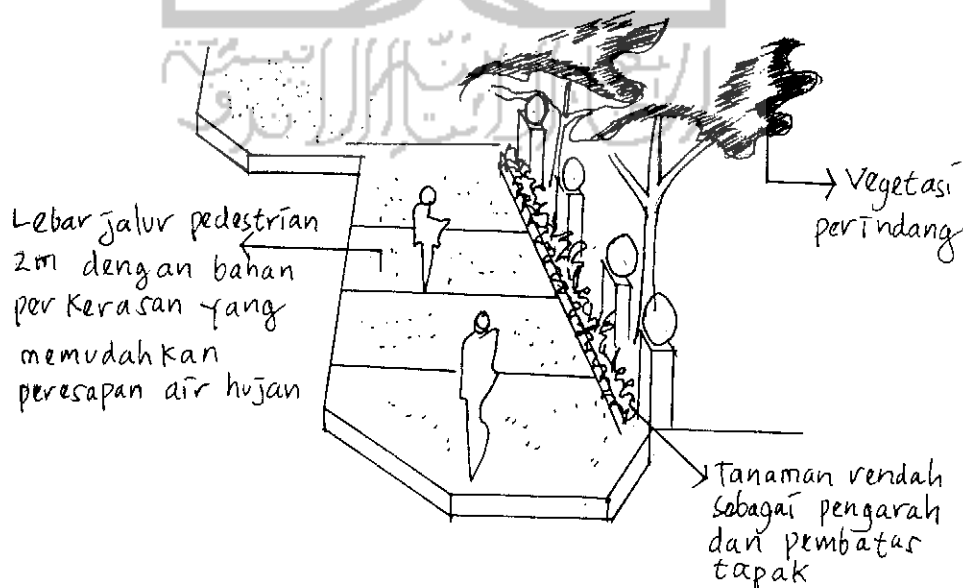 Lebar jalur pedestrian
2m dengan bahan
perkerasan yang
memudahkan
peresapan air hujan
Vegetasi
perindang
Tanaman rendah
sebagai pengarah
dan pembatas
tapak